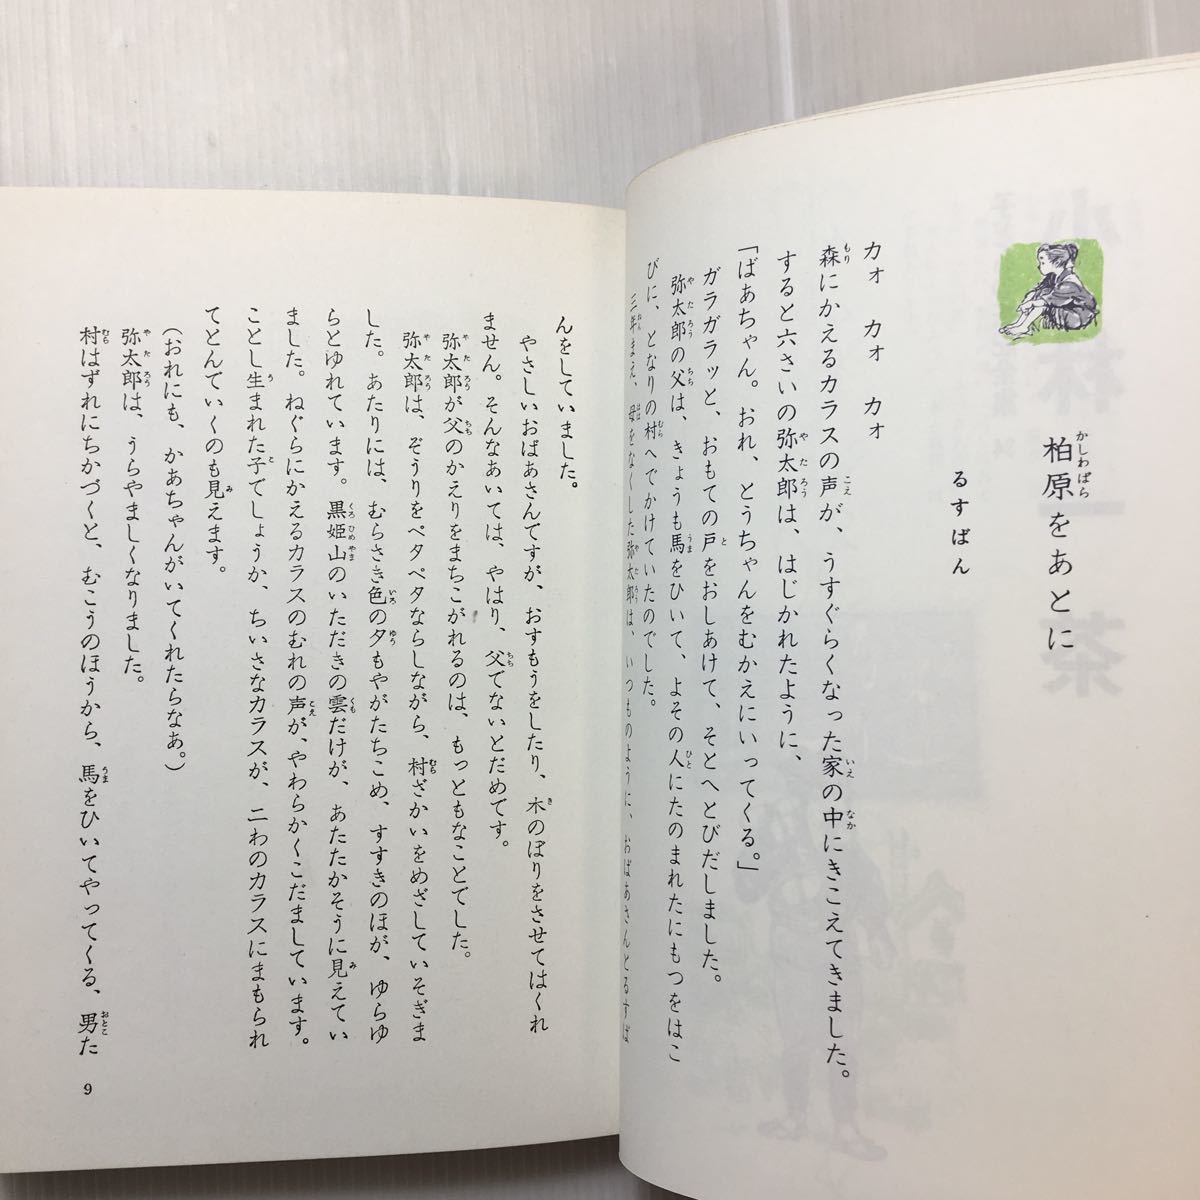 柏原をあとに
るすばん
カォ カォ カォ
森にかえるカラスの声が、うすぐらくなった家の中にきこえてきました。
すると六さいの弥太郎は、はじかれたように、
「ばあちゃん。おれ、とうちゃんをむかえにいってくる。」
ガラガラッと、おもての戸をおしあけて、そとへとびだしました。
弥太郎の父は、きょうも馬をひいて、よその人にたのまれたにもつをはこ
びに、となりの村へでかけていたのでした。
三年まえ、母をなくした弥太郎は、いつものように、おばあさんとるすば
んをしていました。
やさしいおばあさんですが、おすもうをしたり、木のぼりをさせてはくれ
ません。そんなあいては、やはり、父でないとだめです。
弥太郎が父のかえりをまちこがれるのは、もっともなことでした。
弥太郎は、ぞうりをペタペタならしながら、村ざかいをめざしていそぎま
した。あたりには、むらさき色の夕もやがたちこめ、すすきのほが、ゆらゆ
らとゆれています。黒姫山のいただきの雲だけが、あたたかそうに見えてい
ました。ねぐらにかえるカラスのむれの声が、やわらかくこだましています。
ことし生まれた子でしょうか、ちいさなカラスが、二わのカラスにまもられ
てとんでいくのも見えます。
（おれにも、かあちゃんがいてくれたらなあ。）
弥太郎は、うらやましくなりました。
村はずれにちかづくと、むこうのほうから、馬をひいてやってくる、男た
9